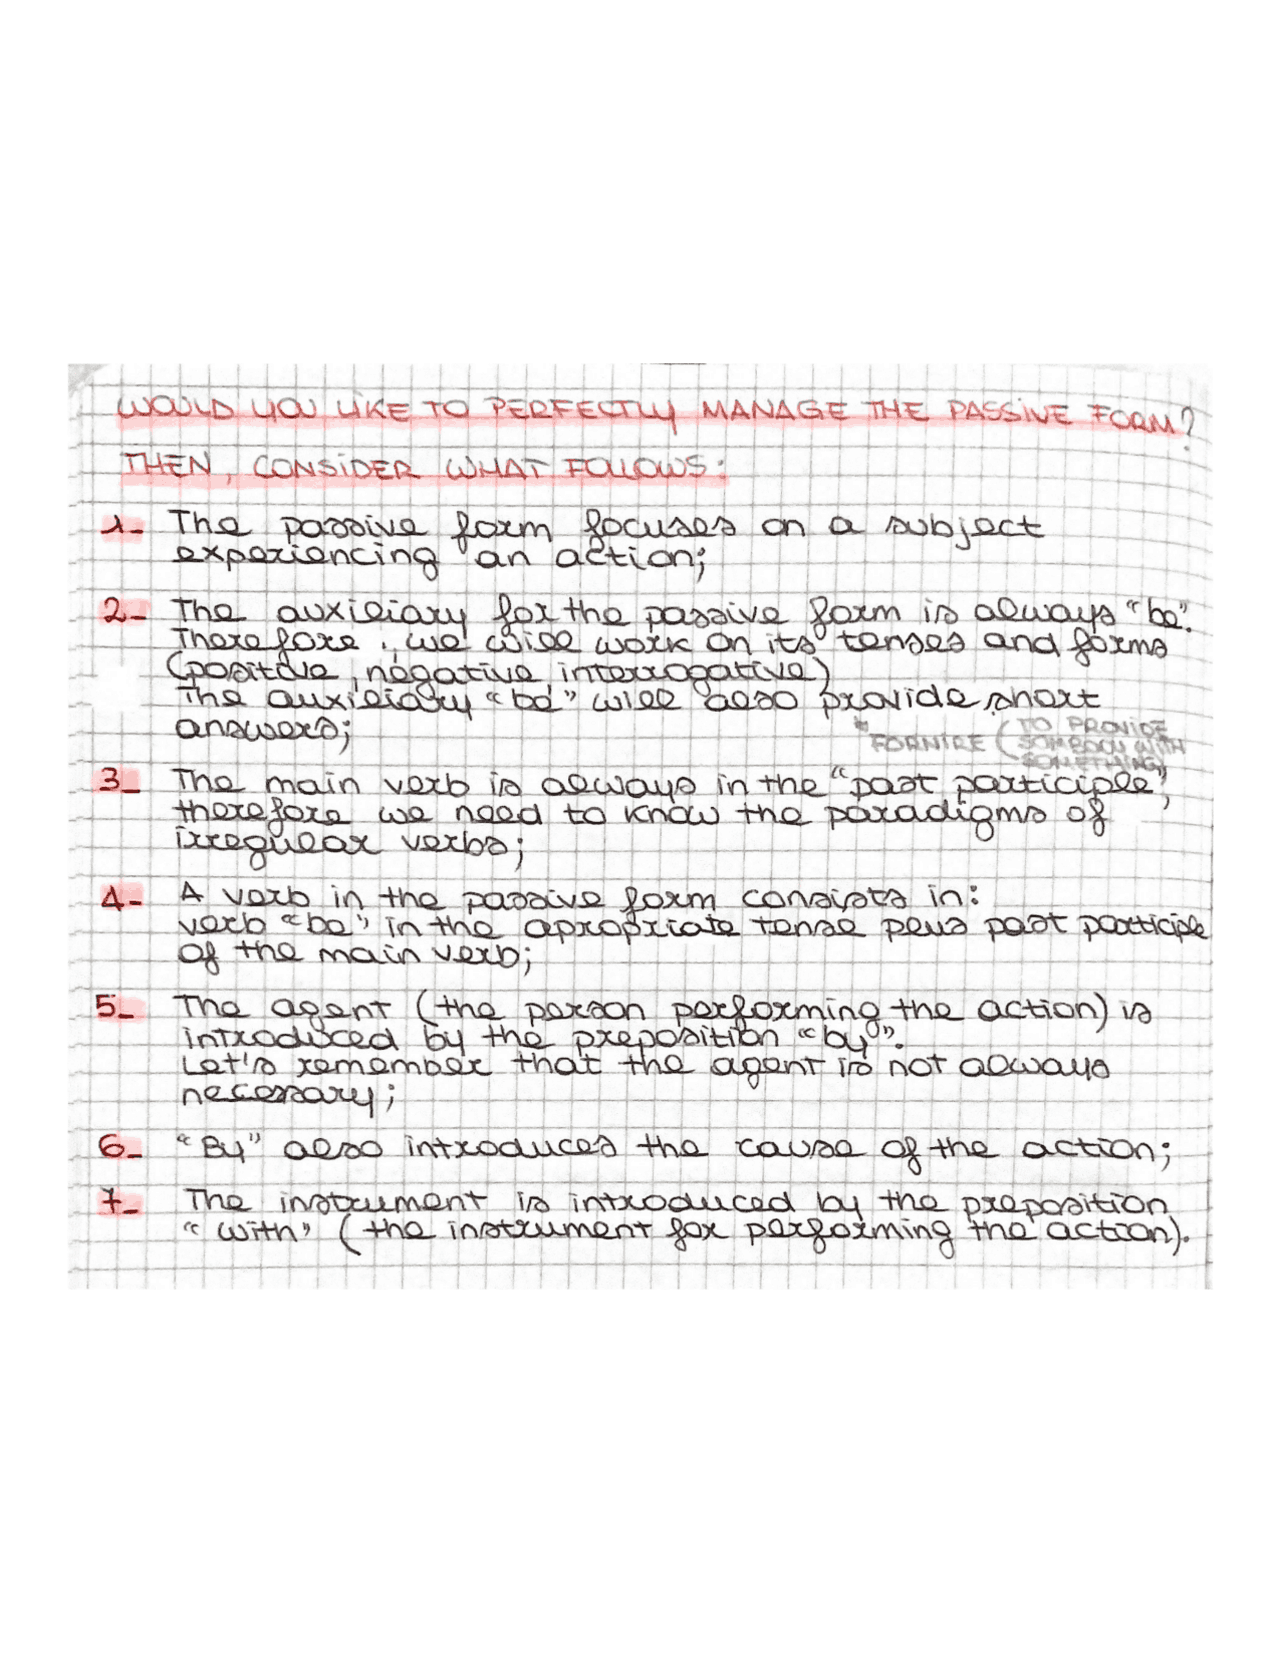 WOULD YOU LIKE TO PERFECTLY MANAGE THE PASSIVE FORM?
THEN, CONSIDER WHAT FOLLOWS:
1- The passive form focuses on a subject
experiencing an action;
2- The auxiliary for the passive form is always "be".
Therefore, we will work on its tenses and forms
(positive, negative, interrogative)
The auxiliary "be" will also provide short
answers;
FORNIRE (TO PROVIDE
SOMBODY WITH
SOMETHING)
3- The main verb is always in the "past participle",
therefore we need to know the paradigms of
irregular verbs;
4- A verb in the passive form consists in:
verb "be" in the apropriate tense plus past participle
of the main verb;
5- The agent (the person performing the action) is
introduced by the preposition "by".
Let's remember that the agent is not always
necessary;
6- "By" also introduces the cause of the action;
7- The instrument is introduced by the preposition
"with" (the instrument for performing the action).